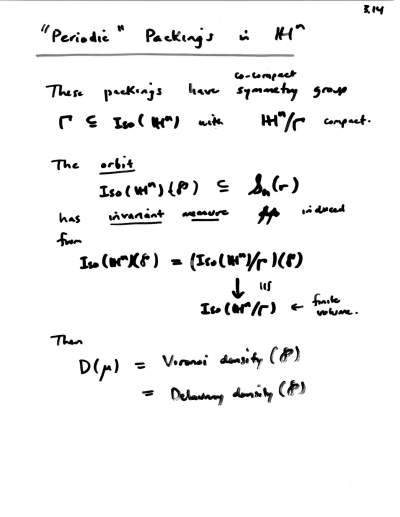 3.14
"Periodic" Packings in ℍⁿ
co-compact
These packings have symmetry group
Γ ⊆ Iso(ℍⁿ) with ℍⁿ/Γ compact.
The orbit
Iso(ℍⁿ)(𝒫) ⊆ 𝒮ₙ(r)
has invariant measure μ induced
from
Iso(ℍⁿ)(𝒫) = (Iso(ℍⁿ)/Γ)(𝒫)
↓ ≅
Iso(ℍⁿ/Γ) ← finite volume.
Then
D(μ) = Voronoi density (𝒫)
= Delaunay density (𝒫)